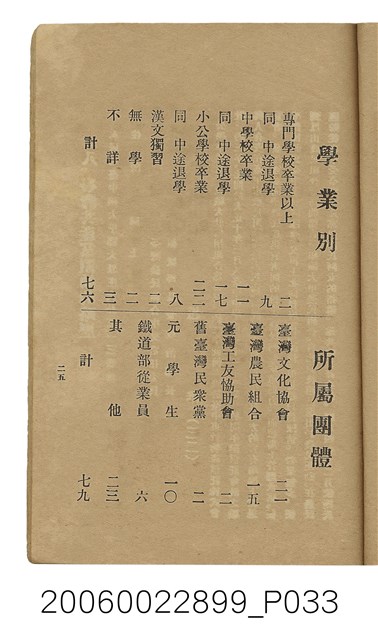 學業別
專門學校卒業以上 二
同 中途退學 九
中學校卒業 一一
同 中途退學 一七
小公學校卒業 二二
同 中途退學 八
漢文獨習 二
無學 二
不詳 三
計 七六
所屬團體
臺灣文化協會 二一
臺灣農民組合 一五
臺灣工友協助會 二
舊臺灣民衆黨 二
元學生 一〇
鐵道部從業員 六
其他 二三
計 七九
二五
20060022899_P033